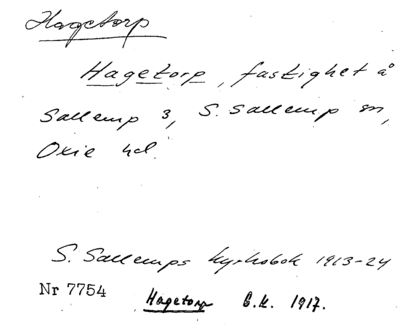 Hagetorp
Hagetorp, fastighet å
Sallerup 3, S. Sallerup sn,
Oxie hd.
S. Sallerups kyrkobok 1913-24
Nr 7754 Hagetorp E.K. 1917.